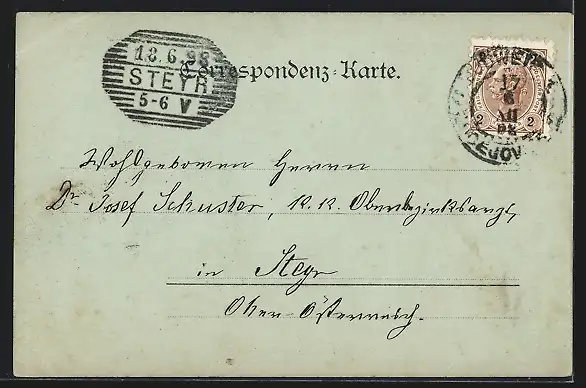 18.6.98
STEYR
5-6 V
Correspondenz-Karte.
17
6
98
2 2
Wohlgeboren Herrn
Dr. Josef Schuster, k. k. Oberbezirksarzt,
in Steyr
Ober-Österreich.